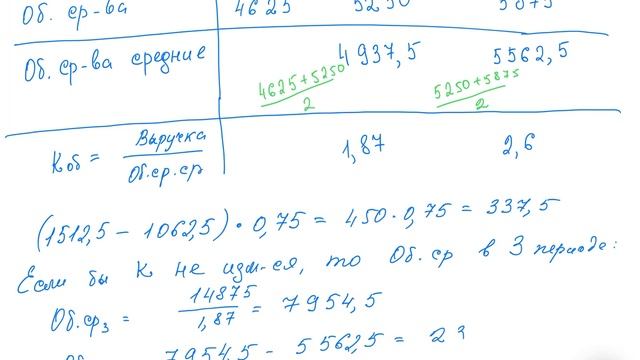 Об. ср-ва 4625 5250 5875
Об. ср-ва средние 4937,5 5562,5
4625+5250 5250+5875
2 2
Kоб = Выручка 1,87 2,6
Об.ср.ср
(1512,5 - 1062,5) • 0,75 = 450 • 0,75 = 337,5
Если бы К не изм-ся, то Об. ср в 3 периоде:
Об.ср₃ = 14875 = 7954,5
1,87
7954,5 - 5562,5 =